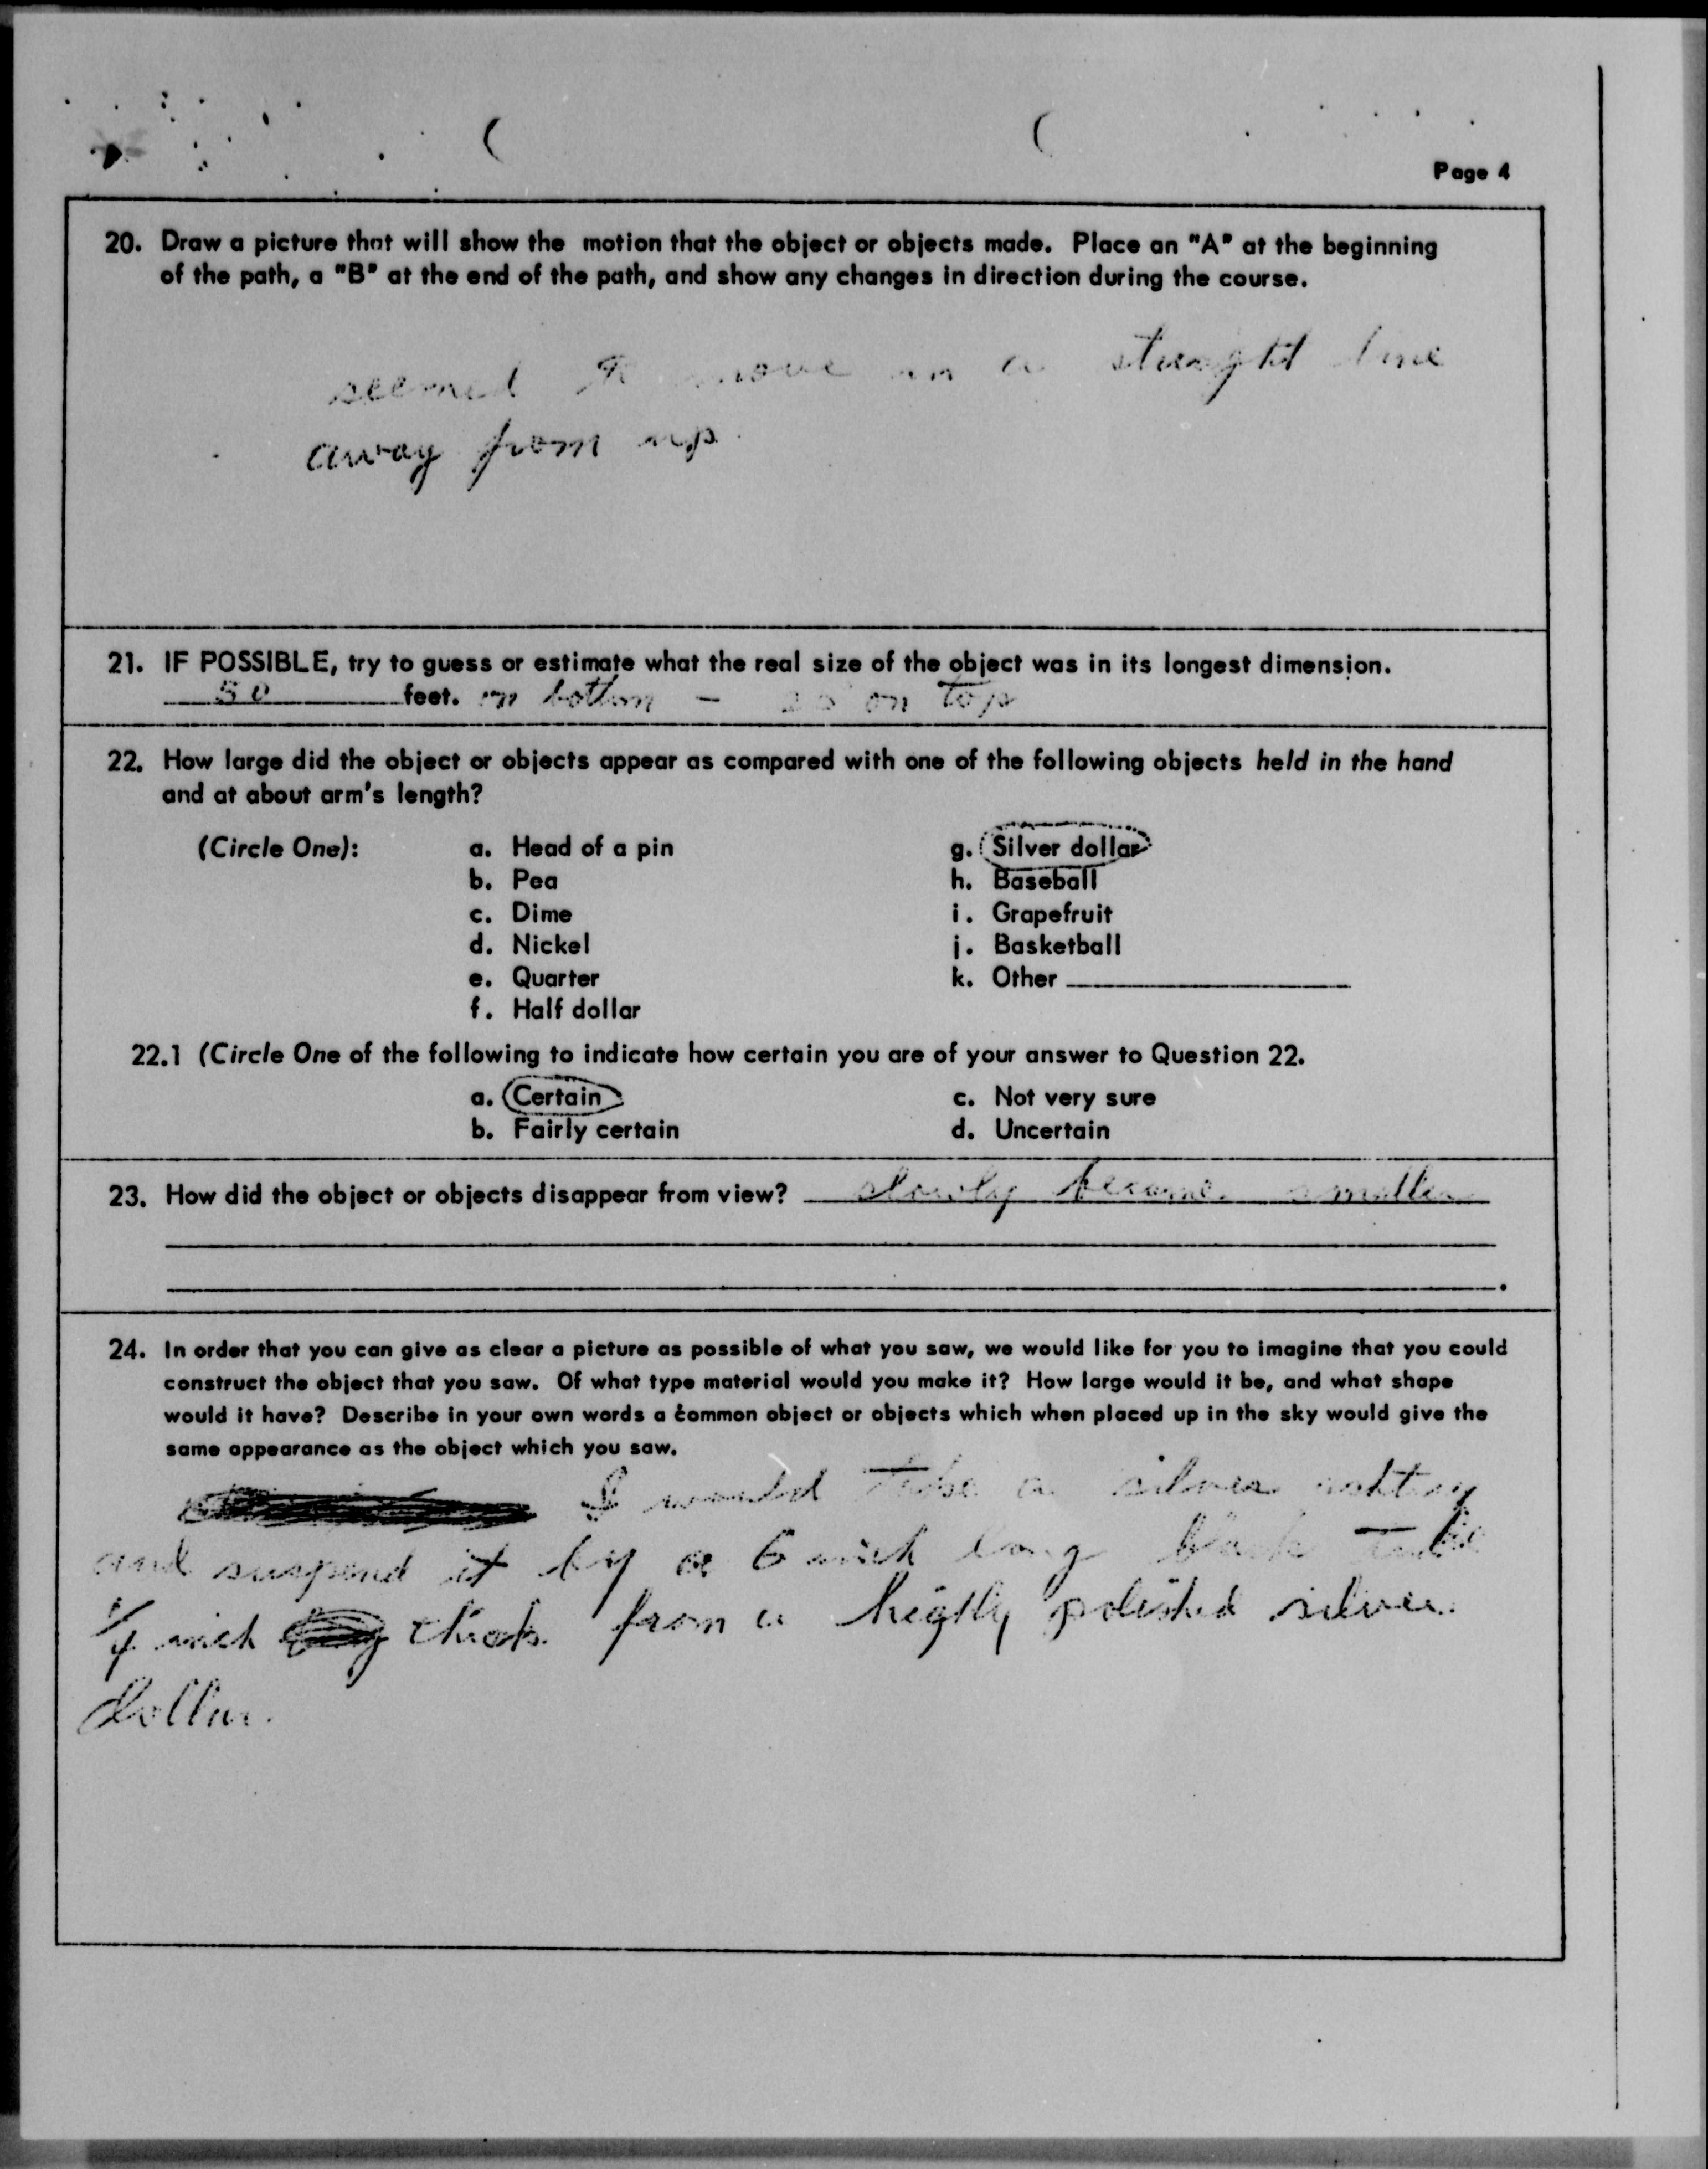 Page 4
20. Draw a picture that will show the motion that the object or objects made. Place an "A" at the beginning
of the path, a "B" at the end of the path, and show any changes in direction during the course.
seemed to move in a straight line
away from up
21. IF POSSIBLE, try to guess or estimate what the real size of the object was in its longest dimension.
50 feet. on bottom - 25 on top
22. How large did the object or objects appear as compared with one of the following objects held in the hand
and at about arm's length?
(Circle One): a. Head of a pin g. Silver dollar
b. Pea h. Baseball
c. Dime i. Grapefruit
d. Nickel j. Basketball
e. Quarter k. Other
f. Half dollar
22.1 (Circle One of the following to indicate how certain you are of your answer to Question 22.
a. Certain c. Not very sure
b. Fairly certain d. Uncertain
23. How did the object or objects disappear from view? slowly became smaller
24. In order that you can give as clear a picture as possible of what you saw, we would like for you to imagine that you could
construct the object that you saw. Of what type material would you make it? How large would it be, and what shape
would it have? Describe in your own words a common object or objects which when placed up in the sky would give the
same appearance as the object which you saw.
I would take a silver
and suspend it by a 6 inch long tube
1/4 inch thick from a highly polished silver
dollar.